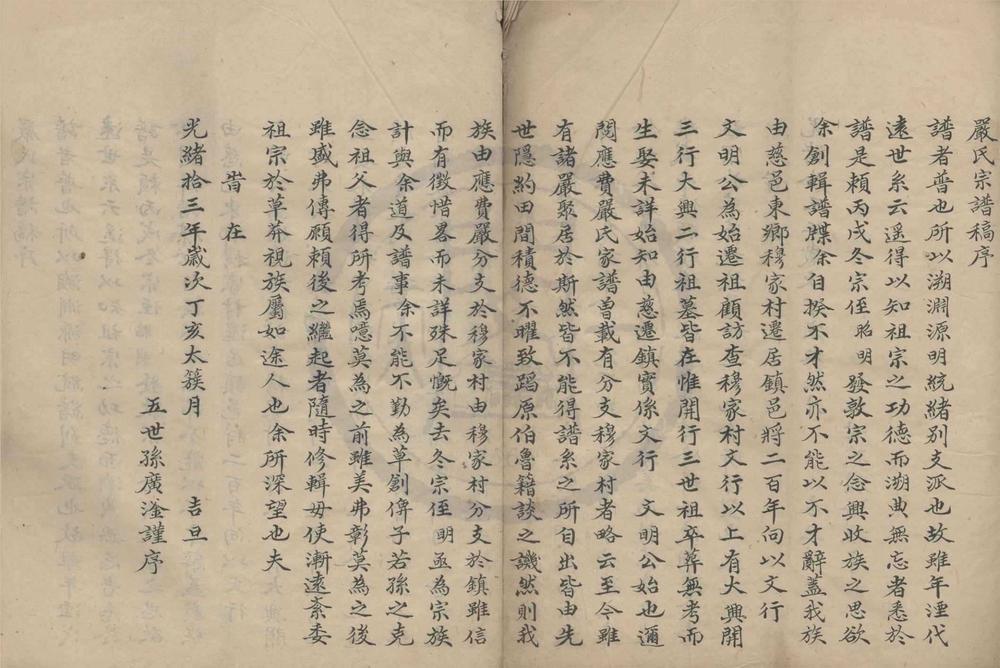 嚴氏宗譜稿序
譜者普也所以溯淵源明統緒別支派也故雖年湮代
遠世系云遥得以知祖宗之功德而溯典無忘者悉於
譜是賴丙戌冬宗侄昭明發敦宗之念興收族之思欲
余創輯譜牒余自揆不才然亦不能以不才辭蓋我族
由慈邑東鄉穆家村遷居鎮邑將二百年向以文行
文明公為始遷祖顧訪查穆家村文行以上有大興開
三行大興二行祖墓皆在惟開行三世祖卒葬無考而
生娶未詳始知由慈遷鎮實係文行 文明公始也邇
閱應費嚴氏家譜曾載有分支穆家村者略云至今雖
有諸嚴聚居於斯然皆不能得譜系之所自出皆由先
世隱約田間積德不曜致蹈原伯魯籍談之譏然則我
族由應費嚴分支於穆家村由穆家村分支於鎮雖信
而有徵惜畧而未詳殊足慨矣去冬宗侄明亟為宗族
計與余道及譜事余不能不勤為草創俾子若孫之克
念祖父者得所考焉噫莫為之前雖美弗彰莫為之後
雖盛弗傳願賴後之繼起者隨時修輯毋使漸遠紊委
祖宗於草莽視族屬如途人也余所深望也夫
旹在
光緒拾三年歲次丁亥太簇月 吉旦
五世孫廣淦謹序